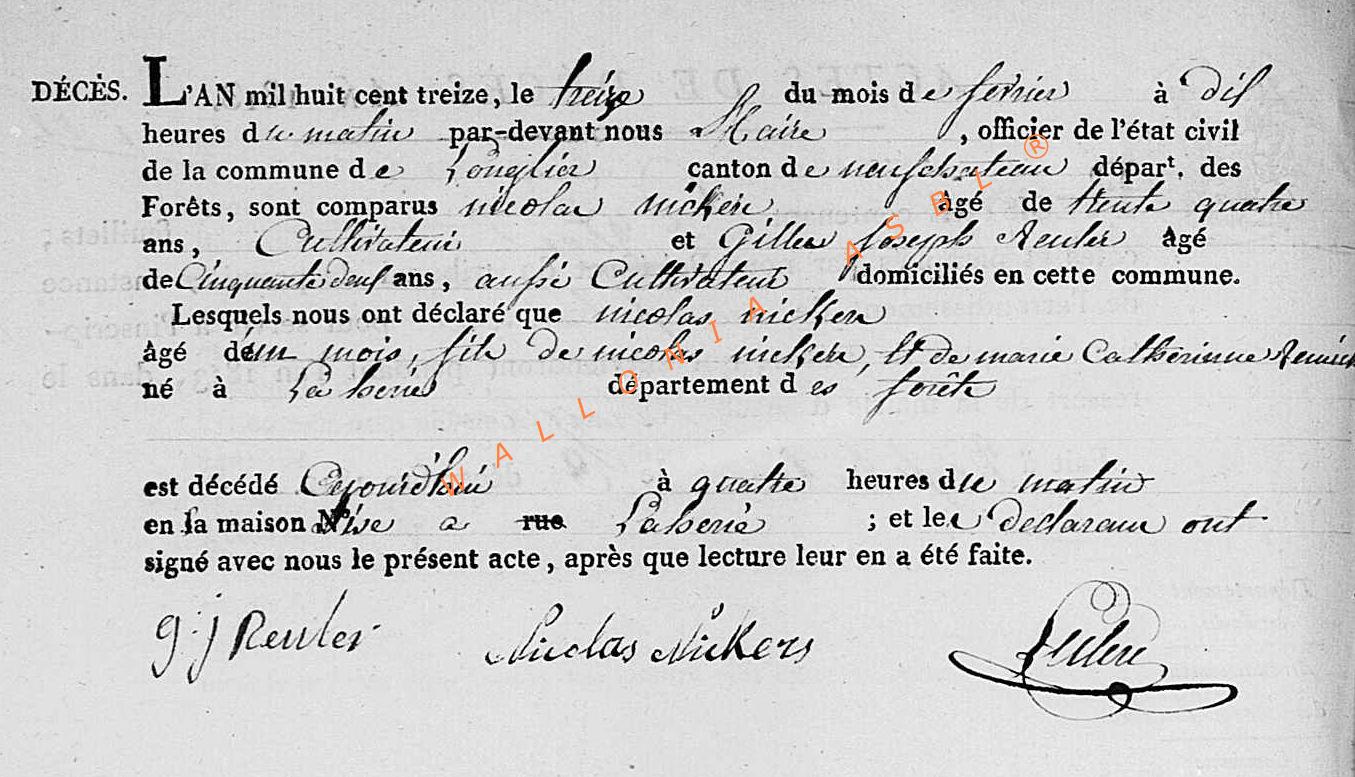 DÉCÈS. L'AN mil huit cent treize, le treize du mois de fevrier à dix
heures du matin par-devant nous Maire , officier de l'état civil
de la commune de Longlier canton de neufchateau départ. des
Forêts, sont comparus nicolas nickers âgé de trente quatre
ans, Cultivateur et Gilles Joseph Reuler âgé
de Cinquante deux ans, aussi Cultivateur domiciliés en cette commune.
Lesquels nous ont déclaré que nicolas nickers
âgé d'un mois, fils de nicolas nickers, et de marie Catherinne
né à Laherie département des forêts
est décédé Cejourdhui à quatre heures du matin
en sa maison Nº sise a rue Laherie ; et les Declarans ont
signé avec nous le présent acte, après que lecture leur en a été faite.
g. j Reuler Nicolas Nickers
WALLONIA ASBL ®